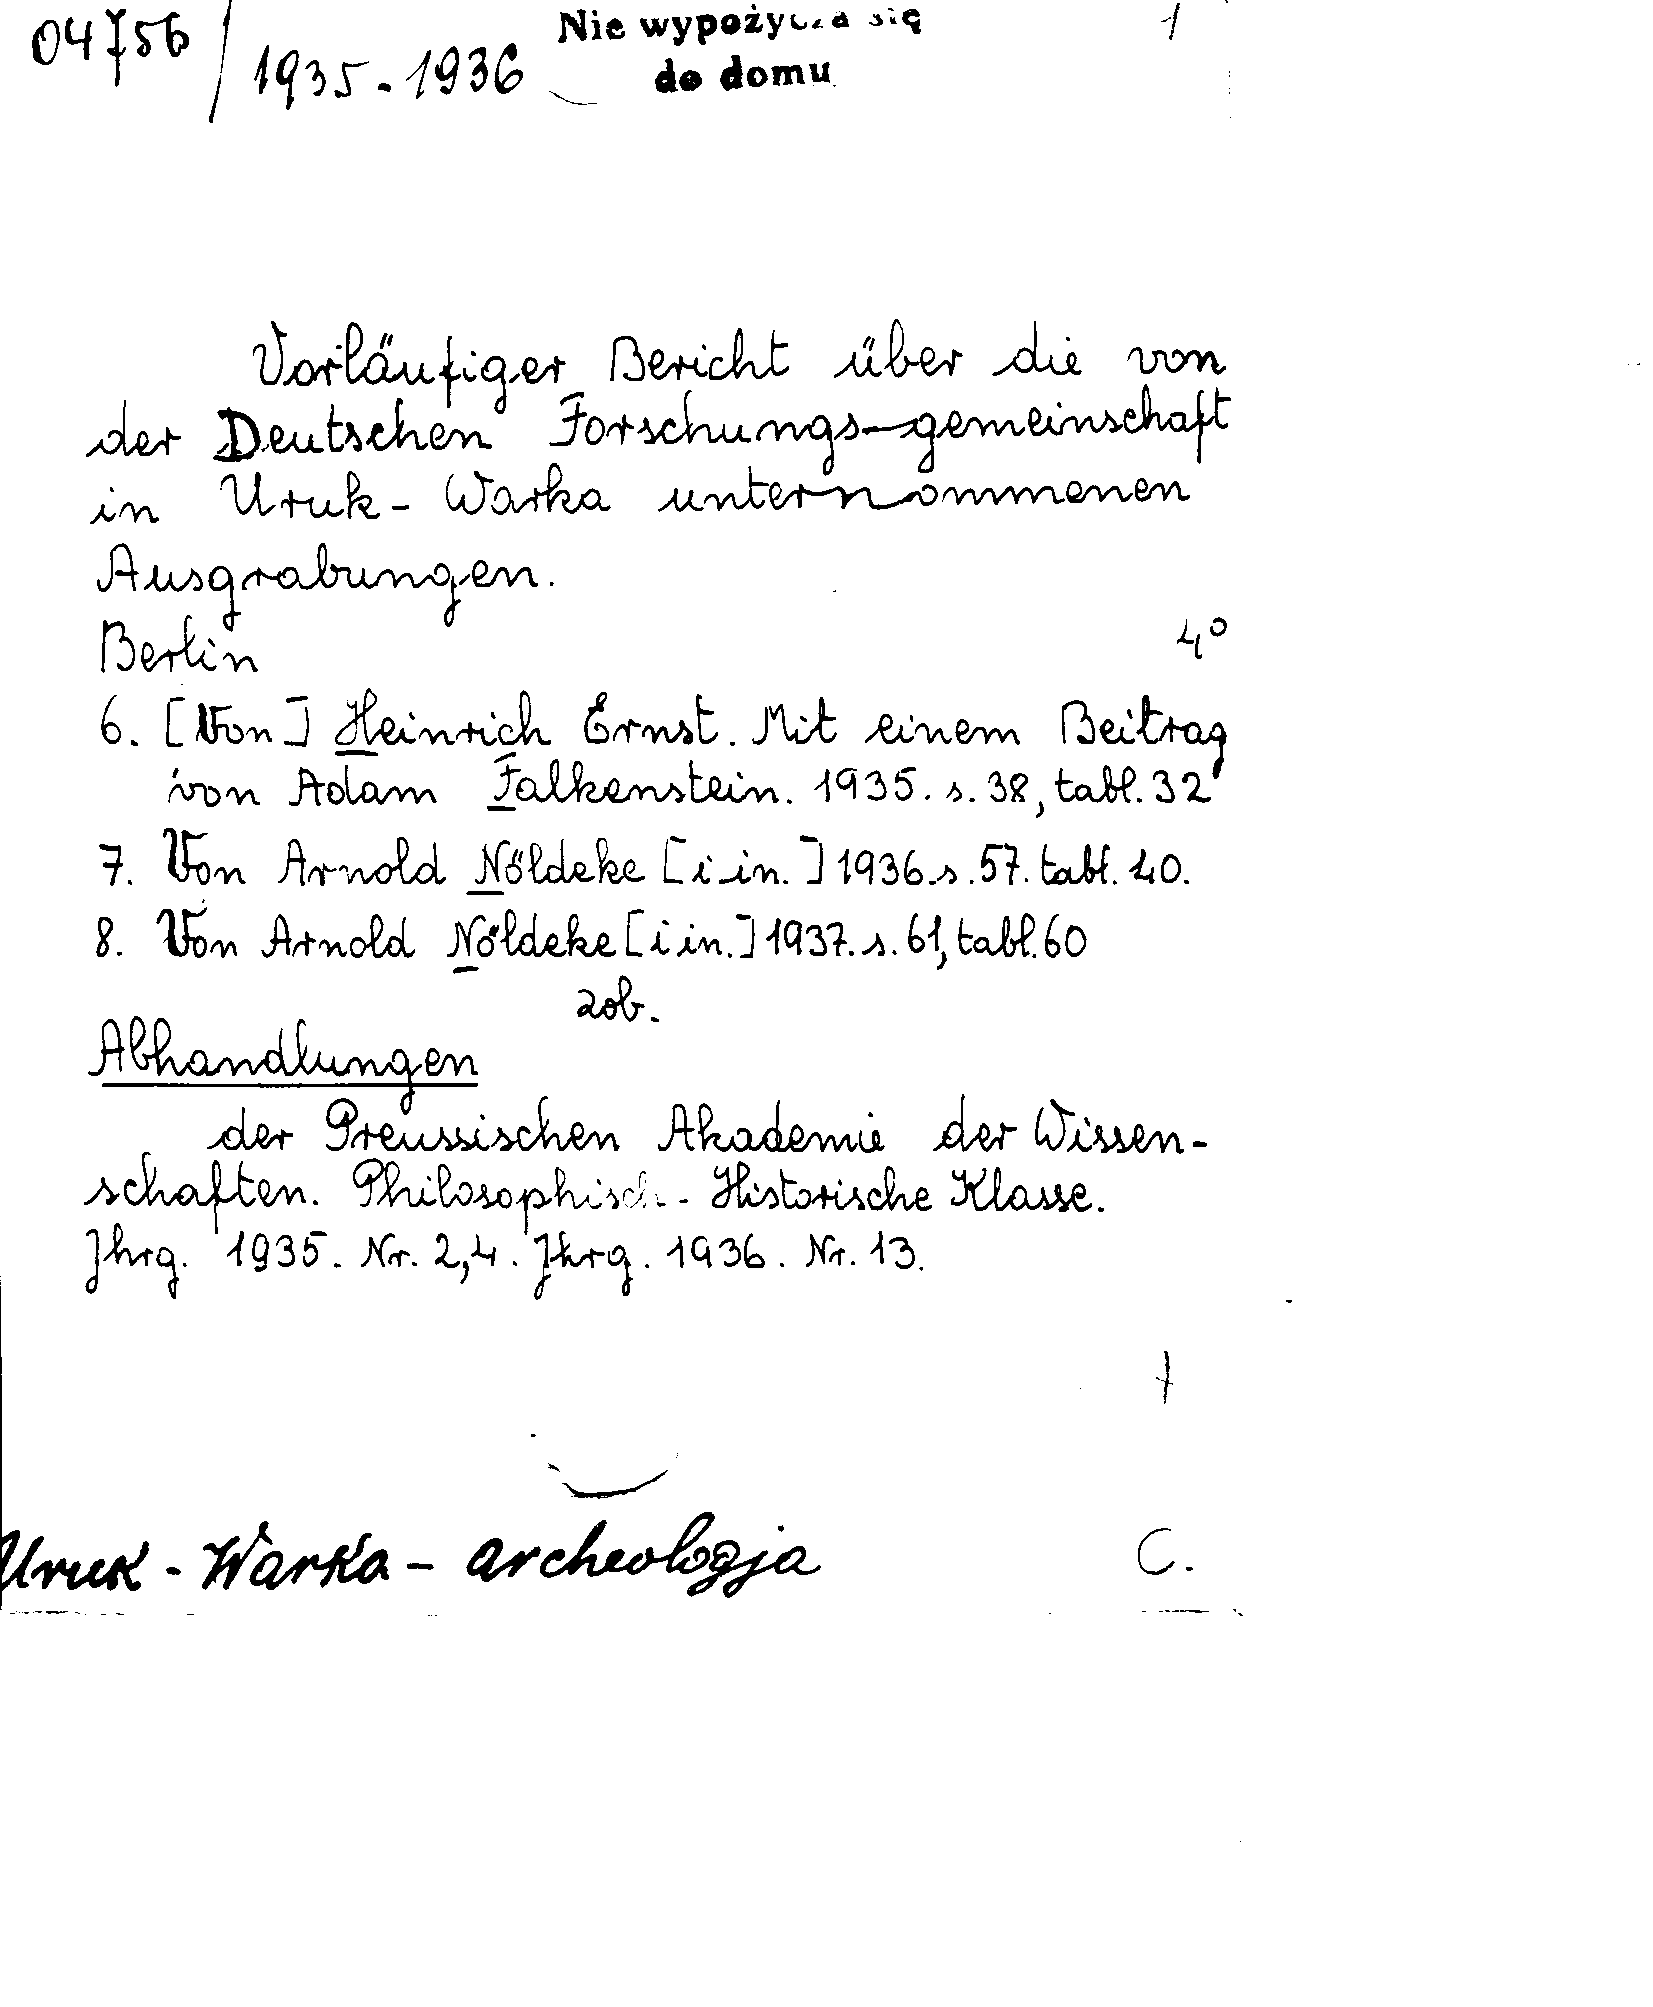 04756 / 1935-1936
Nie wypożycza się
do domu
1
Vorläufiger Bericht über die von
der Deutschen Forschungs-gemeinschaft
in Uruk-Warka unternommenen
Ausgrabungen.
Berlin 4°
6. [Von] Heinrich Ernst. Mit einem Beitrag
von Adam Falkenstein. 1935. s. 38, tabl. 32
7. Von Arnold Nöldeke [i in.] 1936. s. 57. tabl. 40.
8. Von Arnold Nöldeke [i in.] 1937. s. 61, tabl. 60
zob.
Abhandlungen
der Preussischen Akademie der Wissen-
schaften. Philosophisch-Historische Klasse.
Jhrg. 1935. Nr. 2,4. Jhrg. 1936. Nr. 13.
Uruk-Warka - archeologja
C.